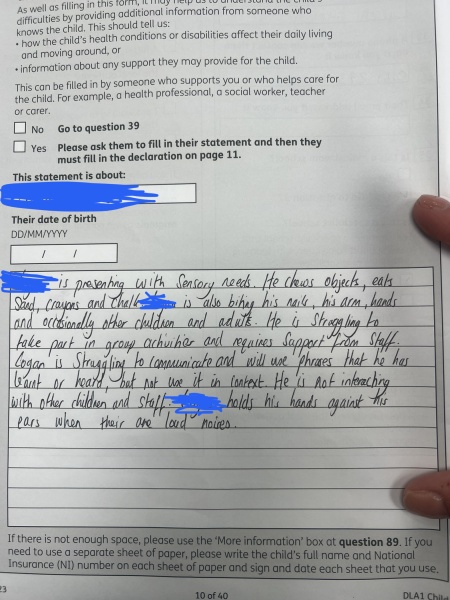 As well as filling in this form, it may help us to understand the child's
difficulties by providing additional information from someone who
knows the child. This should tell us:
• how the child's health conditions or disabilities affect their daily living
and moving around, or
• information about any support they may provide for the child.
This can be filled in by someone who supports you or who helps care for
the child. For example, a health professional, a social worker, teacher
or carer.
No Go to question 39
Yes Please ask them to fill in their statement and then they
must fill in the declaration on page 11.
This statement is about:
Their date of birth
DD/MM/YYYY
/ /
is presenting with Sensory needs. He chews objects, eats
Sand, crayons and chalk. is also biting his nails, his arm, hands
and occasionally other children and adults. He is Struggling to
take part in group activities and requires Support from Staff.
Logan is Struggling to communicate and will use phrases that he has
learnt or heard, but not use it in context. He is not interacting
with other children and staff. holds his hands against his
ears when their are loud noises.
If there is not enough space, please use the 'More information' box at question 89. If you
need to use a separate sheet of paper, please write the child's full name and National
Insurance (NI) number on each sheet of paper and sign and date each sheet that you use.
23 10 of 40 DLA1 Child